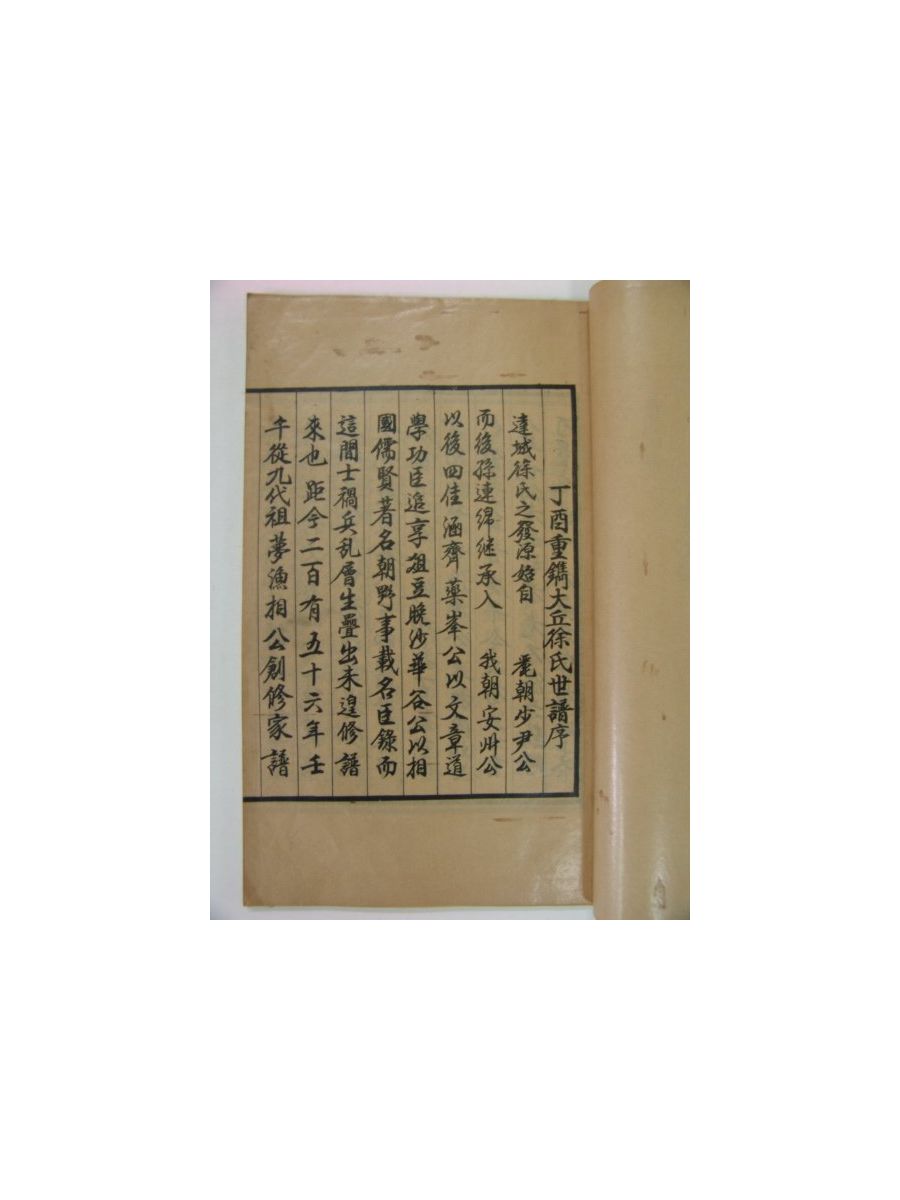 丁酉重鐫大丘徐氏世譜序
達城徐氏之發源始自 麗朝少尹公
而後孫連綿継承入 我朝安州公
以後四佳涵齋藥峯公以文章道
學功臣追享俎豆晩沙華谷公以相
國儒賢著名朝野事載名臣錄而
這間士禍兵乱層生疊出未遑修譜
來也距今二百有五十六年壬
午從九代祖夢漁相公創修家譜